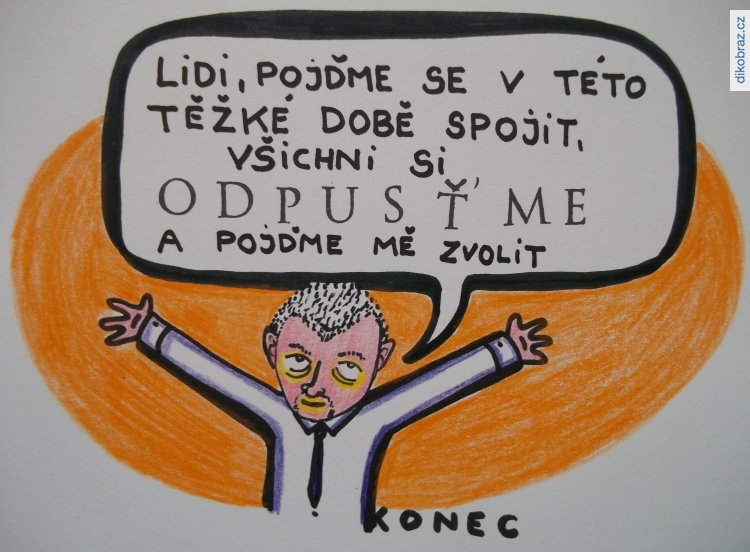 dikobraz.cz
LIDI, POJĎME SE V TÉTO
TĚŽKÉ DOBĚ SPOJIT,
VŠICHNI SI
ODPUSŤME
A POJĎME MĚ ZVOLIT
KONEC